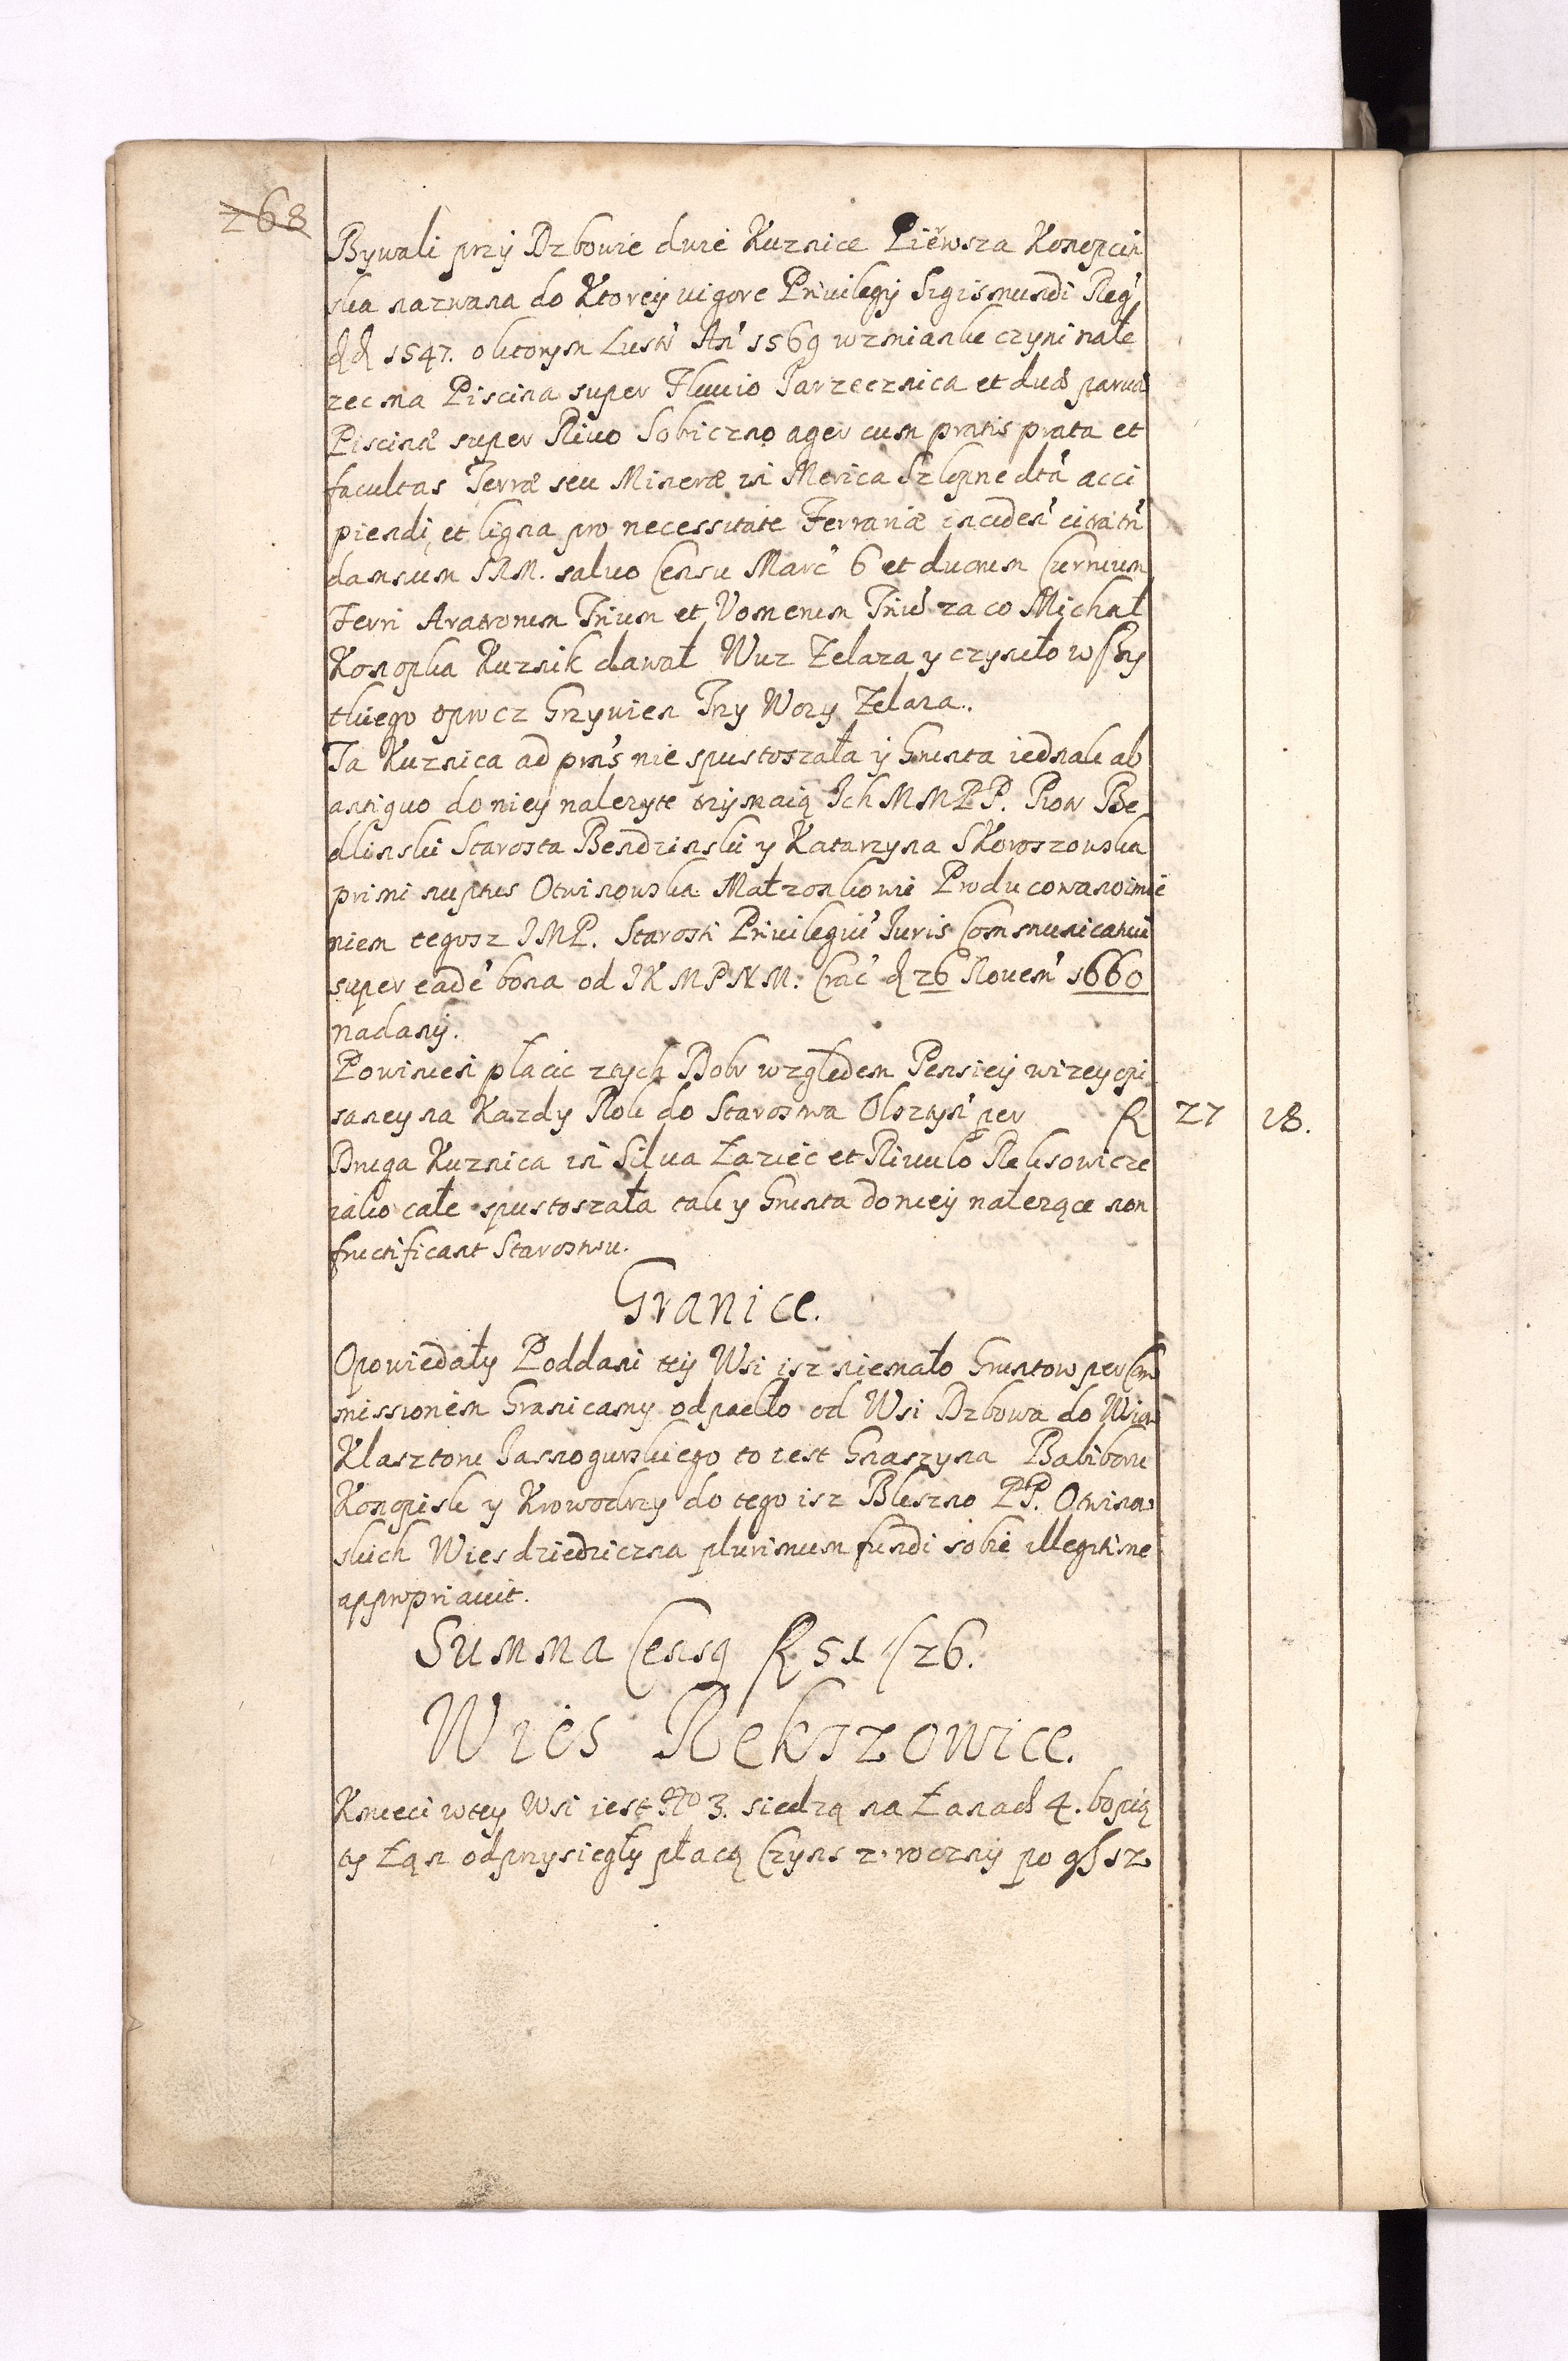 268
Bywali przy Dzbowie dwie Kuznice Pierwsza Konopcin
ska nazwana do Ktorey vigore Privilegij Sigismundi Reg'
dd 1547. o ktorym Lustr' An' 1569 wzmianke czyni nale
zec ma Piscina super Fluuio Jarzecznica et duæ paruæ
Piscinæ super Riuo Sobiczno ager cum pratis prata et
facultas Terræ seu Mineræ in Merica Szlopne dta' acci
piendi, et ligna pro necessitate Ferrariæ incidesi' citra tn'
damnum SRM. saluo Censu Marc' 6 et duorum Curruum
Ferri Aratrorum Trium et Vomerum Triu' za co Michał
Konopka Kuznik dawał Wuz Zelaza y czynszło wszy
tkiego oprocz Grzywien Trzy Wozy Zelaza.
Ta Kuznica ad præs' nie spustoszała y Grunta iednak ab
antiquo do niey nalezyte trzymaią Ich MMPP. Piotr Be
dlinski Starosta Bendzinski y Katarzyna Skoroszowska
primi nuptus Otwinowska Małzonkowie Producowano imie
niem tegosz JMP. Starosti Privilegiu' Iuris Communicatiui
super eade' bona od JKMPNM: Crac' d 26 Nouem' 1660
nadany.
Powinien płacic z tych Dobr względem Pensiey wizey opi
saney na Kazdy Rok do Starostwa Olsztyn' per R 27 18.
Druga Kuznica in Silua Łaziec et Riuulo Reksowicze
iako całe spustoszała tak y Grunta do niey nalezące non
fructificant Starostwu.
Granice.
Opowiedały Poddani tey Wsi isz niemało Gruntow per Com
missionem Granicamy odpadło od Wsi Dzbowa do Wsiow
Klasztoru Jasnogurskiego to iest Gnaszyna Kalikowa
Konopisk y Krowodrzy do tego isz Bleszno PP. Otwinow
skich Wies dziedziczna plurimum fundi sobie illegitime
appropriauit.
Summa Censq R 51 /26.
Wies Rekszowice.
Kmieci w tey Wsi iest No 3. siedzą na Łanach 4. bo pią
ty Łąn odprzysiegły płacą Czynsz roczny po gr 12